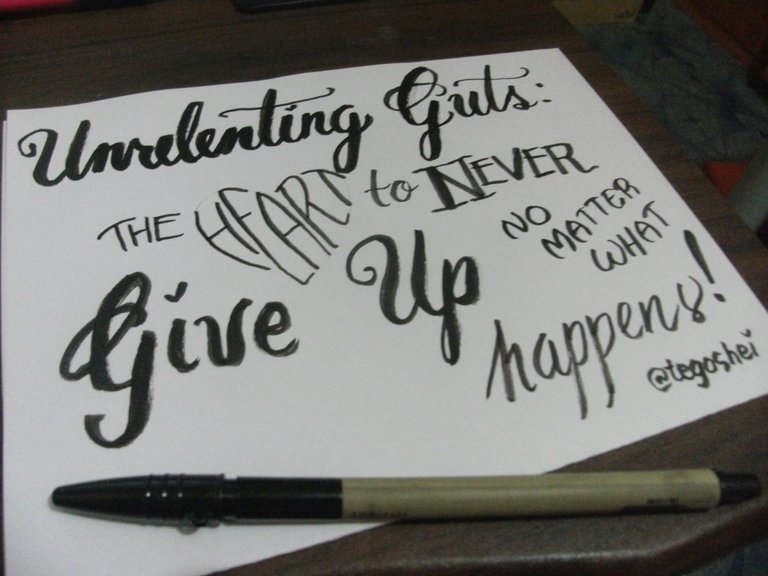 Unrelenting Guts:
THE HEART to NEVER
Give Up
NO
MATTER
WHAT
happens!
@tegoshei